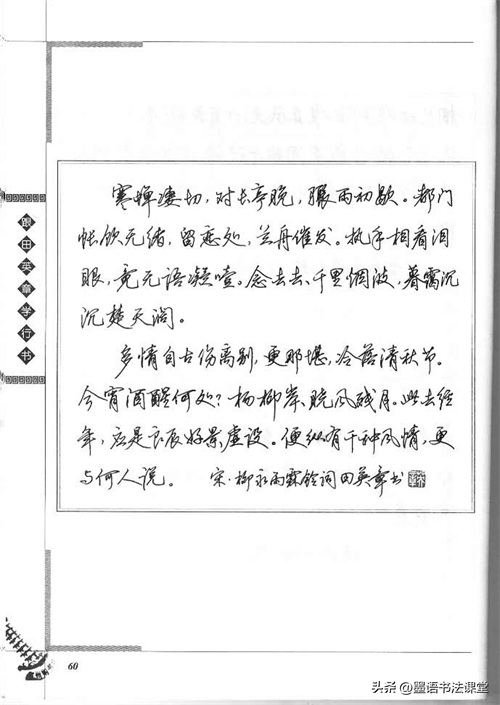 跟田英章学行书
寒蝉凄切，对长亭晚，骤雨初歇。都门
帐饮无绪，留恋处，兰舟催发。执手相看泪
眼，竟无语凝噎。念去去、千里烟波，暮霭沉
沉楚天阔。
多情自古伤离别，更那堪，冷落清秋节。
今宵酒醒何处？杨柳岸、晓风残月。此去经
年，应是良辰好景虚设。便纵有千种风情，更
与何人说。 宋·柳永雨霖铃词田英章书
60
头条 @墨语书法课堂